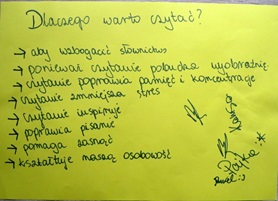 Dlaczego warto czytać?
→ aby wzbogacić słownictwo
→ ponieważ czytanie pobudza wyobraźnię
→ czytanie poprawia pamięć i koncentrację
→ czytanie zmniejsza stres
→ czytanie inspiruje
→ poprawia pisanie
→ pomaga zasnąć
→ kształtuje naszą osobowość